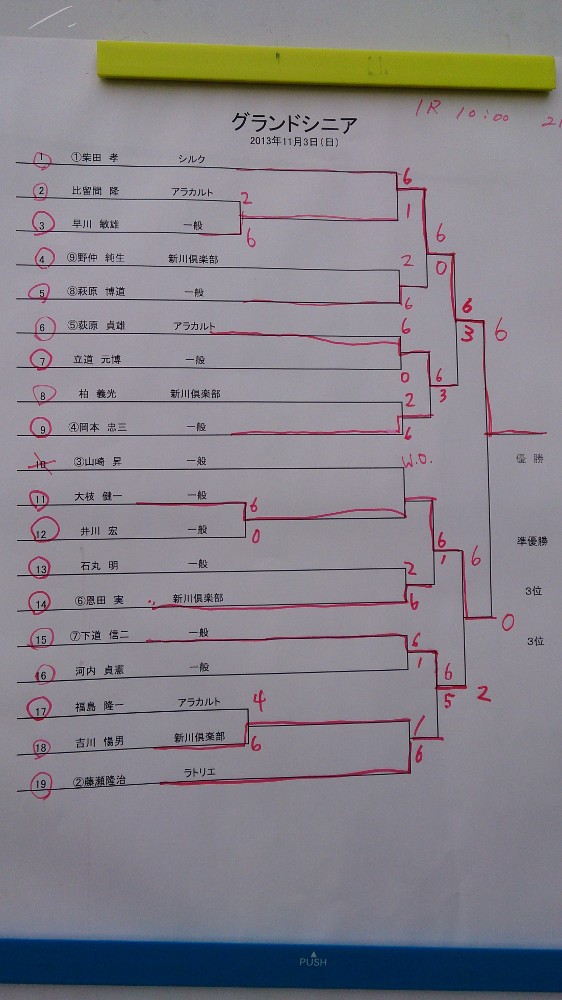 1R 10:00 21
グランドシニア
2013年11月3日(日)
1 ①柴田 孝 シルク 6
2 比留間 隆 アラカルト 2
1
3 早川 敏雄 一般 6
6
4 ⑨野仲 純生 新川倶楽部 2
0
5 ⑧萩原 博道 一般 6
6
3
6
6 ⑤荻原 貞雄 アラカルト 6
7 立道 元博 一般 0
6
3
8 柏 義光 新川倶楽部 2
9 ④岡本 忠三 一般 6
優勝
10 ③山崎 昇 一般 W.O.
11 大枝 健一 一般 6
12 井川 宏 一般 0
6
1
6
準優勝
13 石丸 明 一般 2
14 ⑥恩田 実 新川倶楽部 6
3位
0
15 ⑦下道 信二 一般 6
3位
16 河内 貞憲 一般 1
6
5
2
17 福島 隆一 アラカルト 4
1
18 吉川 惕男 新川倶楽部 6
19 ②藤瀬隆治 ラトリエ 6
PUSH